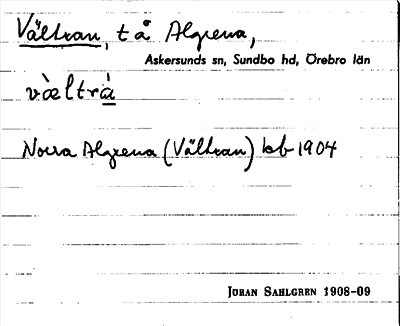 Vältran, t å Algrena,
Askersunds sn, Sundbo hd, Örebro län
vàeltrà
Norra Algrena (Vältran) bb 1904
JOHAN SAHLGREN 1908-09